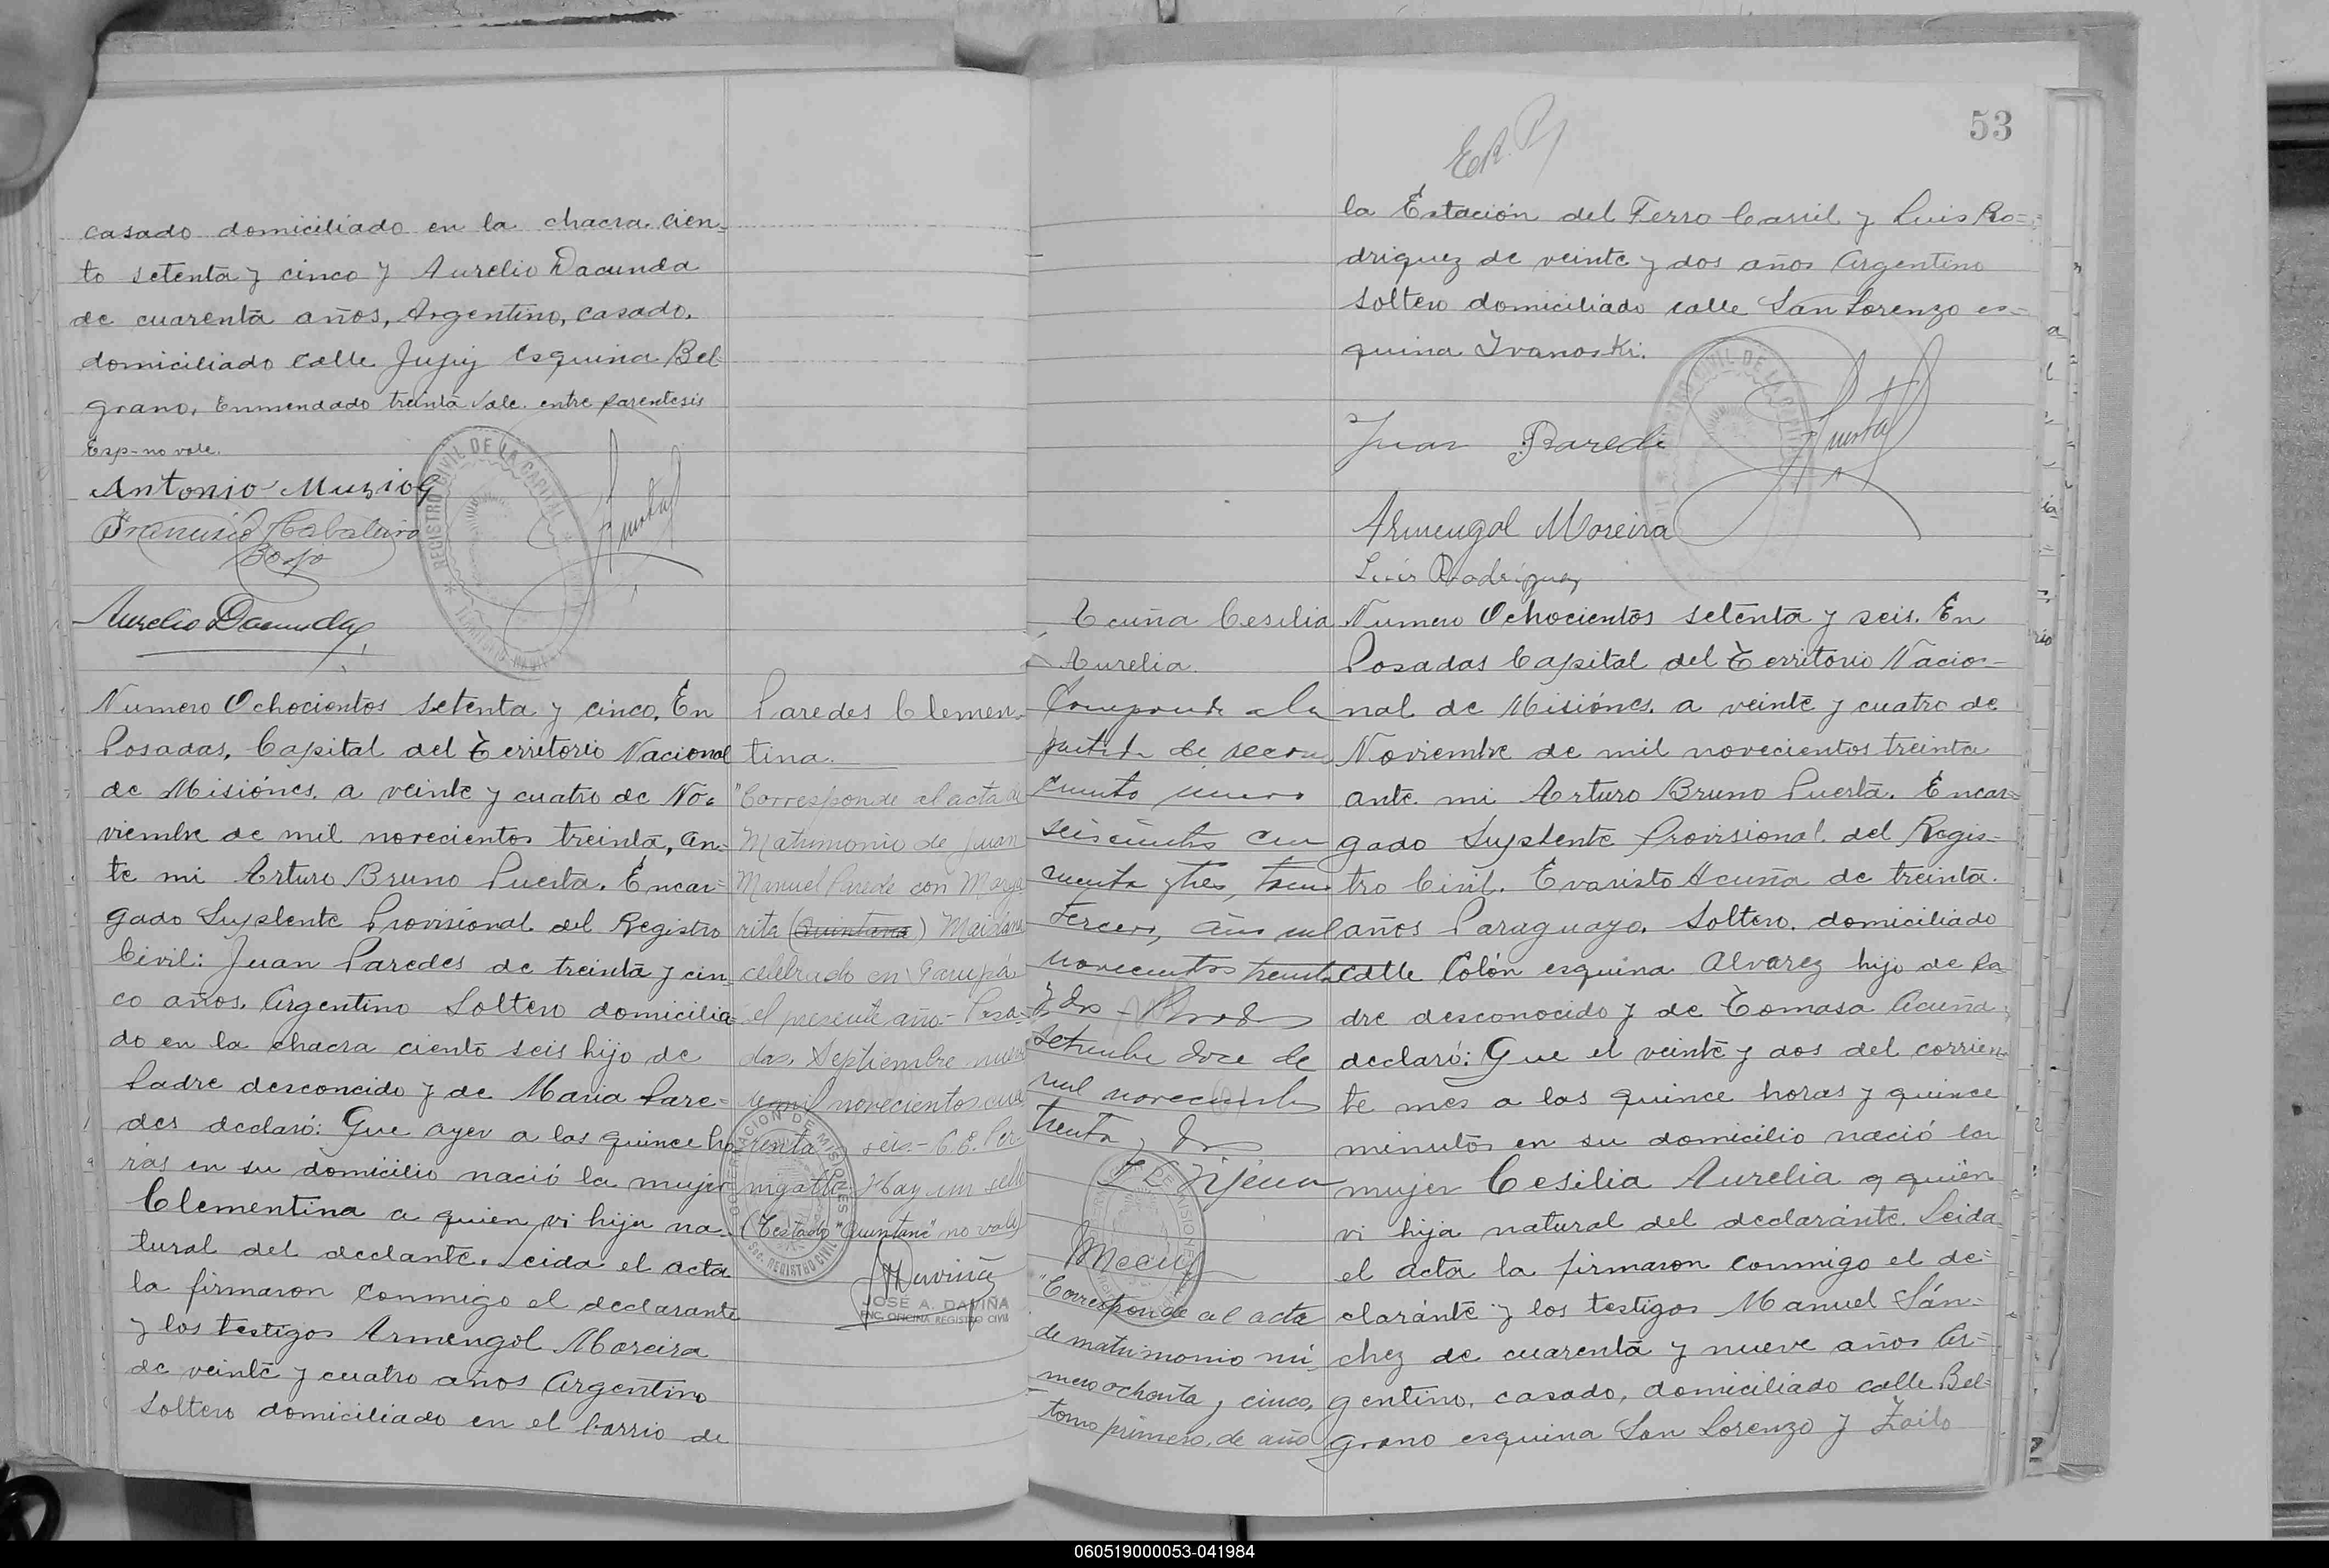 casado domiciliado en la chacra cien-
to setenta y cinco y Aurelio Dacunda
de cuarenta años, Argentino, casado,
domiciliado calle Jujuy esquina Bel-
grano, Enmendado treinta vale. entre parentesis
Esp-no vale.
Antonio Muzio
Francisco Cabaleiro
Aurelio Dacunda
REGISTRO CIVIL DE LA CAPITAL
Numero Ochocientos setenta y cinco, En
Posadas, Capital del Territorio Nacional
de Misiónes, a veinte y cuatro de No-
viembre de mil novecientos treinta, an-
te mi Arturo Bruno Puerta. Encar-
gado Suplente Provisional del Registro
Civil: Juan Paredes de treinta y cin
co años, Argentino Soltero domicilia-
do en la chacra ciento seis hijo de
Padre desconcido y de Maria Pare-
des declaró: Que ayer a las quince ho
ras en su domicilio nació la mujer
Clementina a quien vi hija na-
tural del declante. Leida el acta
la firmaron conmigo el declarante
y los testigos Armengol Moreira
de veinte y cuatro años Argentino
Soltero domiciliado en el barrio de
Paredes Clemen-
tina.
"Corresponde al acta de
Matrimonio de Juan
Manuel Parede con Marga
rita (Quintana) Maidana
celebrado en Garupá
el presente año.- Posa-
das, Septiembre nueve
de mil novecientos cua
renta y seis.- C.E. Per
Hay un sello
(Testado "Quintana" no vale)
GOBERNACION DE MISIONES
Sec. REGISTRO CIVIL
JOSÉ A. DAVIÑA
ENC. OFICINA REGISTRO CIVIL
53
la Estación del Ferro Carril y Luis Ro-
driguez de veinte y dos años Argentino
soltero domiciliado calle San Lorenzo es-
quina Ivanoski.
Juan Parede
Armengol Moreira
Luis Rodriguez
Acuña Cesilia
Aurelia.
Corresponde a la
partida de recono
cimiento número
seiscientos cin
cuenta y tres, tomo
tercero, año mil
novecientos treinta
y dos - Posadas
Setiembre doce de
mil novecientos
treinta y dos
"Corresponde al acta
de matrimonio nú-
mero ochenta y cinco,
tomo primero, de año
Numero Ochocientos setenta y seis. En
Posadas Capital del Territorio Nacio-
nal de Misiónes, a veinte y cuatro de
Noviembre de mil novecientos treinta
ante mi Arturo Bruno Puerta. Encar-
gado Suplente Provisional del Regis-
tro Civil. Evaristo Acuña de treinta
años Paraguayo, Soltero, domiciliado
calle Colón esquina Alvarez hijo de Pa
dre desconocido y de Tomasa Acuña
declaró: Que el veinte y dos del corrien-
te mes a las quince horas y quince
minutos en su domicilio nació la
mujer Cesilia Aurelia a quien
vi hija natural del declaránte. Leida
el acta la firmaron conmigo el de-
claránte y los testigos Manuel Sán-
chez de cuarenta y nueve años Ar-
gentino, casado, domiciliado calle Bel-
grano esquina San Lorenzo y Zoilo
060519000053-041984